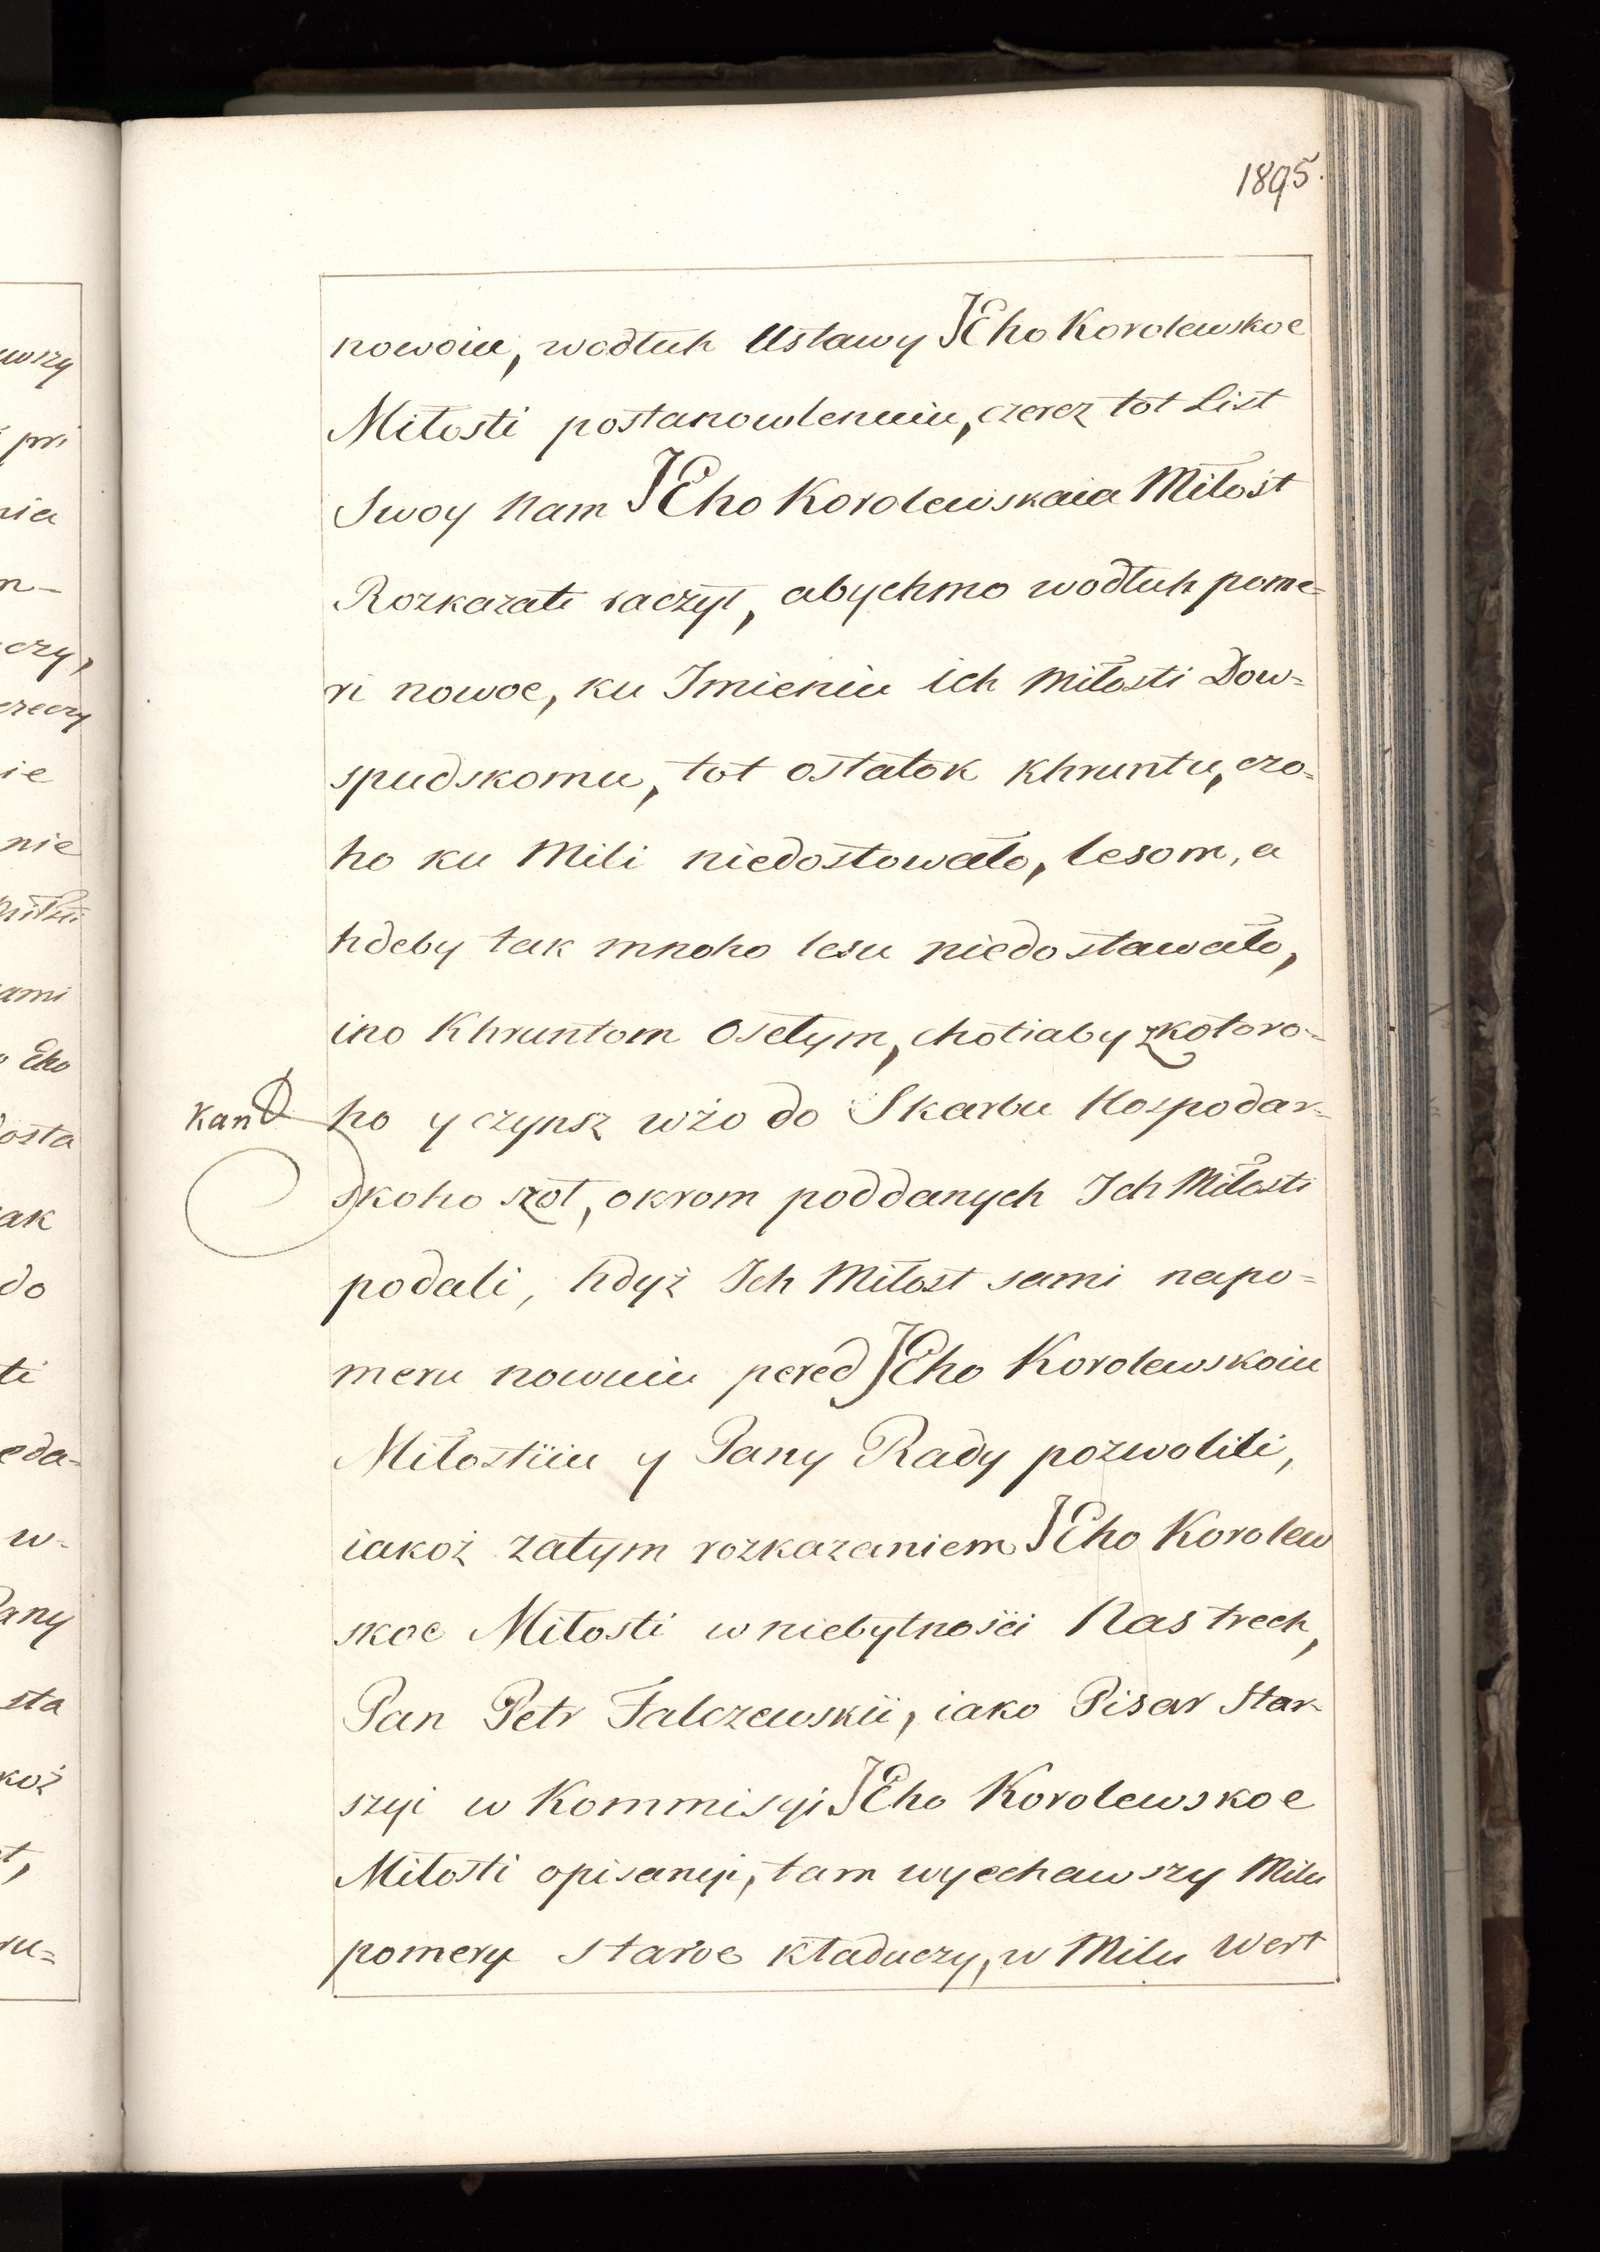 1895.
nowoiu, wodłuh Ustawy JEho Korolewskoe
Miłosti postanowlenuiu, czerez tot List
Swoy Nam JEho Korolewskaia Miłost
Rozkazati raczył, abychmo wodłuh pome-
ri nowoe, ku Imieniu ich Miłosti Dow-
spudskomu, tot ostatok khruntu, czo-
ho ku Mili niedostowało, lesom, a
hdeby tak mnoho lesu niedostawało,
ino Khruntom Osełym, chotiaby zkotoro-
ho y czynsz wżo do Skarbu Hospodar-
skoho szoł, okrom poddanych Ich Miłosti
podali, hdyż Ich Miłost sami napo-
meru nowuiu pered JEho Korolewskoiu
Miłostiiu y Pany Rady pozwolili,
iakoż zatym rozkazaniem JEho Korolew
skoe Miłosti w niebytnosći Nas trech,
Pan Petr Falczewskii, iako Pisar Star-
szyi w Kommisyi JEho Korolewskoe
Miłosti opisanyi, tam wyechawszy Milu
pomery staroe kładuczy, w Milu Wert
Kand
wszy
pri
nia
m-
czy,
czeczy
ie
nie
ami
Eho
dosta
ak
do
ti
eda-
w-
Pany
sta
koż
t,
ru-